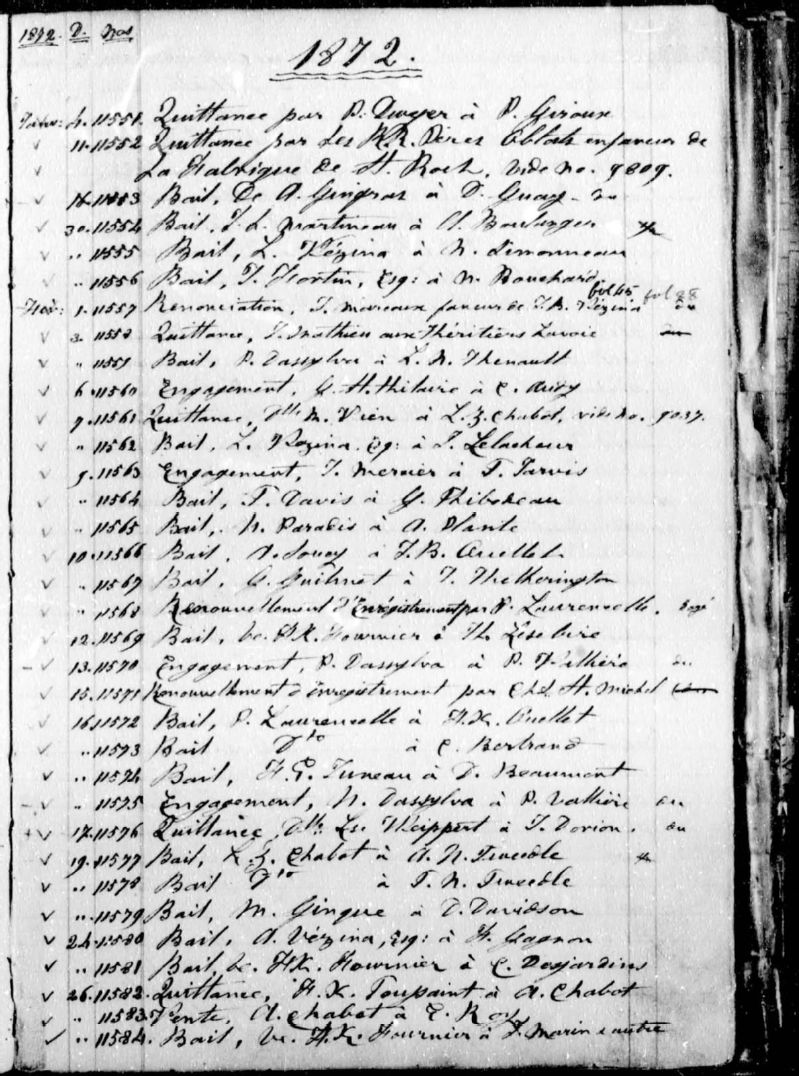 1872. D. Nos
1872.
Janv: 4. 11551. Quittance par P. Dwyer à P. Giroux
11. 11552 Quittance par Les R.R. Pères Oblats en faveur de
La Fabrique de St. Roch, vide no. 9809.
18. 11553 Bail, De A. Gingras à D. Guay
30. 11554 Bail, J. L. Martineau à A. Boulanger
" 11555 Bail, L. Vézina à N. Simonneau
" 11556 Bail, J. Fortin, Esq: à N. Bouchard
Fév: 1. 11557 Renonciation, J. Marcoux faveur de J. B. Vézina fol 45 fol 28
3. 11558 Quittance, J. Mathieu aux Héritiers Lavoie
" 11559 Bail, P. Dassylva à L. N. Thenault
6. 11560 Engagement, G. St. Hilaire à C. Auby
7. 11561 Quittance, Dlle M. Vien à L. Z. Chabot, vide no. 9037.
" 11562 Bail, L. Vezina Esq: à J. Lelacheur
9. 11563 Engagement, J. Mercier à T. Jarvis
" 11564 Bail, T. Davis à G. Thibodeau
" 11565 Bail, N. Paradis à A. Plante
10. 11566 Bail, A. Soucy à J. B. Ouellet
" 11567 Bail, G. Guilmet à J. Thetherington
" 11568 Renouvellement d'Enrégistrement par P. Laurencelle.
12. 11569 Bail, ve. F.X. Fournier à Th. Lesebire
13. 11570 Engagement, P. Dassylva à P. Vallière
15. 11571 Renouvellement d'enregistrement par Chs St. Michel
16. 11572 Bail, P. Laurencelle à F. X. Ouellet
" 11573 Bail Dto à C. Bertrand
" 11574 Bail, F. G. Juneau à D. Beaumont
" 11575 Engagement, N. Dassylva à P. Vallière
17. 11576 Quittance, Dlle Ls. Weippert à J. Dorion.
19. 11577 Bail, L. Z. Chabot à A. N. Tweedle
" 11578 Bail Dto à T. N. Tweedle
" 11579 Bail, M. Gingue à D. Davidson
24. 11580 Bail, A. Vézina, Esq: à F. Gagnon
" 11581 Bail, ve. F.X. Fournier à C. Desjardins
26. 11582. Quittance, F. X. Toupaint à A. Chabot
" 11583. Vente, A. Chabot à E. Roy
" 11584. Bail, ve. F.X. Fournier à F. Marin & autre